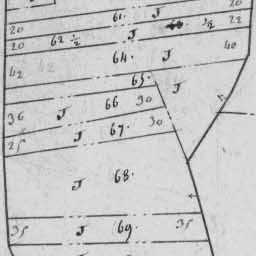 61. J 20
20 ½ 22
20 62 ½ J
64. J 40
42
65.
J
36 J 66 30
25 J 67. 30
J 68.
35 J 69. 35